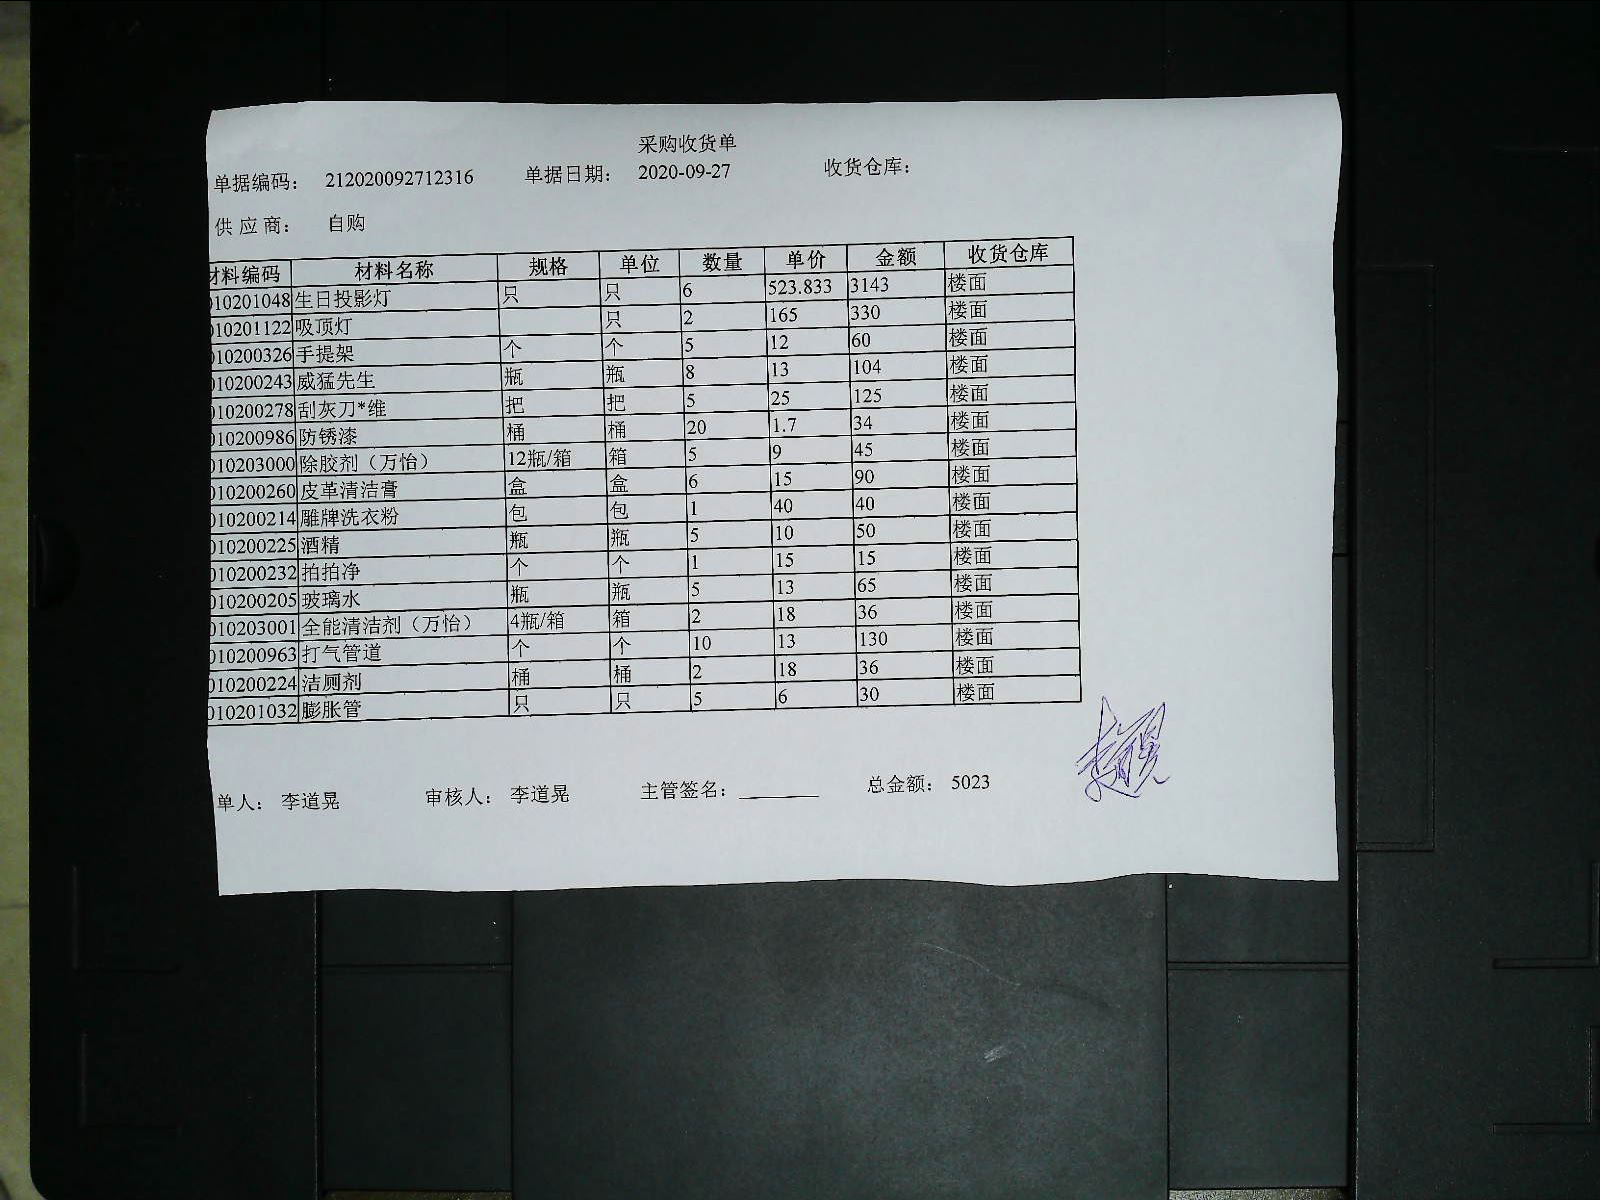 采购收货单
单据编码： 212020092712316 单据日期： 2020-09-27 收货仓库：
供 应 商： 自购
材料编码 材料名称 规格 单位 数量 单价 金额 收货仓库
010201048 生日投影灯 只 只 6 523.833 3143 楼面
010201122 吸顶灯 只 2 165 330 楼面
010200326 手提架 个 个 5 12 60 楼面
010200243 威猛先生 瓶 瓶 8 13 104 楼面
010200278 刮灰刀*维 把 把 5 25 125 楼面
010200986 防锈漆 桶 桶 20 1.7 34 楼面
010203000 除胶剂（万怡） 12瓶/箱 箱 5 9 45 楼面
010200260 皮革清洁膏 盒 盒 6 15 90 楼面
010200214 雕牌洗衣粉 包 包 1 40 40 楼面
010200225 酒精 瓶 瓶 5 10 50 楼面
010200232 拍拍净 个 个 1 15 15 楼面
010200205 玻璃水 瓶 瓶 5 13 65 楼面
010203001 全能清洁剂（万怡） 4瓶/箱 箱 2 18 36 楼面
010200963 打气管道 个 个 10 13 130 楼面
010200224 洁厕剂 桶 桶 2 18 36 楼面
010201032 膨胀管 只 只 5 6 30 楼面
单人： 李道晃 审核人： 李道晃 主管签名：________ 总金额： 5023